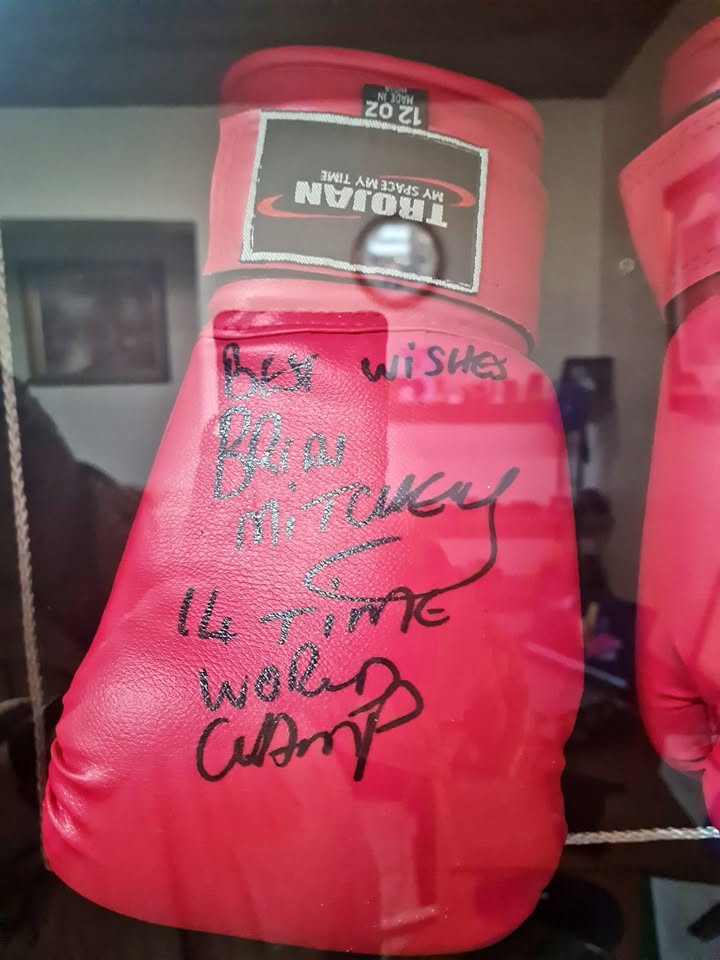 12 OZ
MADE IN
INDIA
TROJAN
MY SPACE MY TIME
BEST WISHES
BRIAN
MITCHELL
14 TIME
WORLD
CHAMP